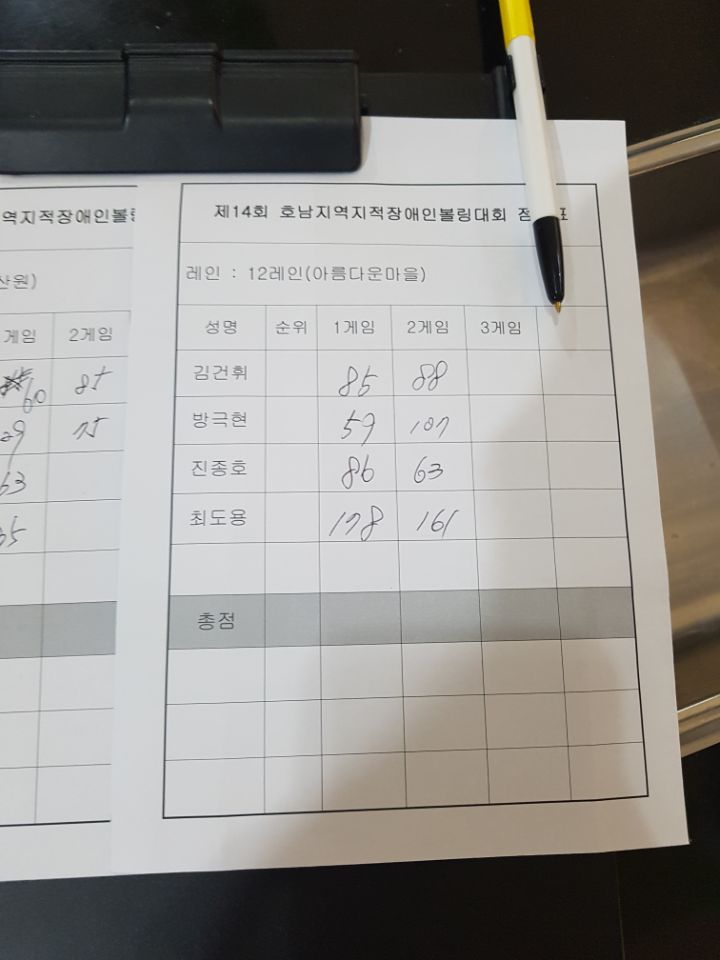 역지적장애인볼링
산원)
게임 2게임
60 85
29 75
63
35
제14회 호남지역지적장애인볼링대회 점 표
레인 : 12레인(아름다운마을)
성명 순위 1게임 2게임 3게임
김건휘 85 88
방극현 59 107
진종호 86 63
최도용 178 161
총점